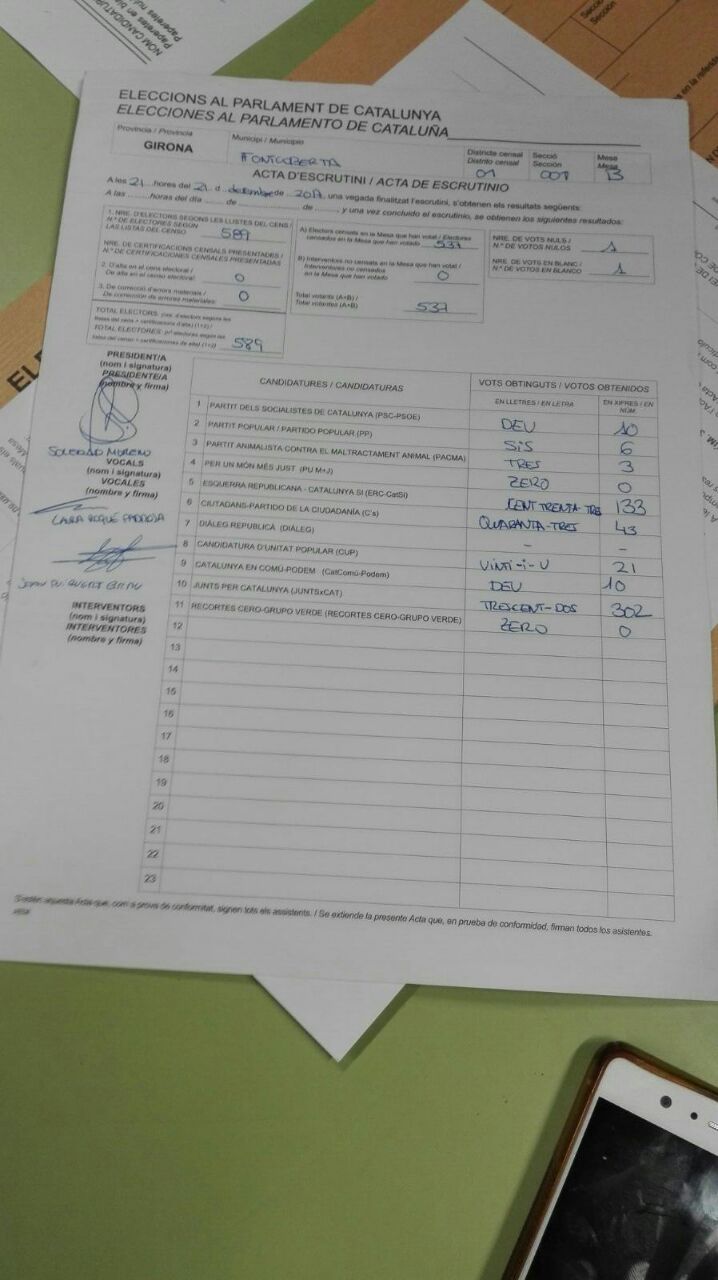 NOM CANDIDATUR
ELECCIONS AL PARLAMENT DE CATALUNYA
ELECCIONES AL PARLAMENTO DE CATALUÑA
Província / Provincia
GIRONA
Municipi / Municipio
FONTCOBERTA
Districte censal
Distrito censal
01
Secció
Sección
001
Mesa
Mesa
B
ACTA D'ESCRUTINI / ACTA DE ESCRUTINIO
A les 21 hores del 21 d desembre de 2017, una vegada finalitzat l'escrutini, s'obtenen els resultats següents:
A las ......horas del día ...... de ............ de ......, y una vez concluido el escrutinio, se obtienen los siguientes resultados:
1. NRE. D'ELECTORS SEGONS LES LLISTES DEL CENS /
N.º DE ELECTORES SEGÚN
LAS LISTAS DEL CENSO
589
NRE. DE CERTIFICACIONS CENSALS PRESENTADES /
N.º DE CERTIFICACIONES CENSALES PRESENTADAS
2. D'alta en el cens electoral /
De alta en el censo electoral:
0
3. De correcció d'errors materials /
De corrección de errores materiales:
0
TOTAL ELECTORS:
TOTAL ELECTORES:
589
A) Electors censats en la Mesa que han votat / Electores
censados en la Mesa que han votado
537
B) Interventors no censats en la Mesa que han votat /
Interventores no censados
en la Mesa que han votado
0
Total votants (A+B) /
Total votantes (A+B)
537
NRE. DE VOTS NULS /
N.º DE VOTOS NULOS
1
NRE. DE VOTS EN BLANC /
N.º DE VOTOS EN BLANCO
1
PRESIDENT/A
(nom i signatura)
PRESIDENTE/A
(nombre y firma)
SOLEDAD MORENO
VOCALS
(nom i signatura)
VOCALES
(nombre y firma)
LAURA
JOAN
INTERVENTORS
(nom i signatura)
INTERVENTORES
(nombre y firma)
CANDIDATURES / CANDIDATURAS
VOTS OBTINGUTS / VOTOS OBTENIDOS
EN LLETRES / EN LETRA
EN XIFRES / EN NÚM.
1 PARTIT DELS SOCIALISTES DE CATALUNYA (PSC-PSOE) DEU 10
2 PARTIT POPULAR / PARTIDO POPULAR (PP) SIS 6
3 PARTIT ANIMALISTA CONTRA EL MALTRACTAMENT ANIMAL (PACMA) TRES 3
4 PER UN MÓN MÉS JUST (PU M+J) ZERO 0
5 ESQUERRA REPUBLICANA - CATALUNYA SÍ (ERC-CatSí) CENT TRENTA-TRES 133
6 CIUTADANS-PARTIDO DE LA CIUDADANÍA (C's) QUARANTA-TRES 43
7 DIÀLEG REPUBLICÀ (DIÀLEG) - -
8 CANDIDATURA D'UNITAT POPULAR (CUP) VINT-I-U 21
9 CATALUNYA EN COMÚ-PODEM (CatComú-Podem) DEU 10
10 JUNTS PER CATALUNYA (JUNTSxCAT) TRESCENT-DOS 302
11 RECORTES CERO-GRUPO VERDE (RECORTES CERO-GRUPO VERDE) ZERO 0
12
13
14
15
16
17
18
19
20
21
22
23
S'estén aquesta Acta que, com a prova de conformitat, signen tots els assistents. / Se extiende la presente Acta que, en prueba de conformidad, firman todos los asistentes.